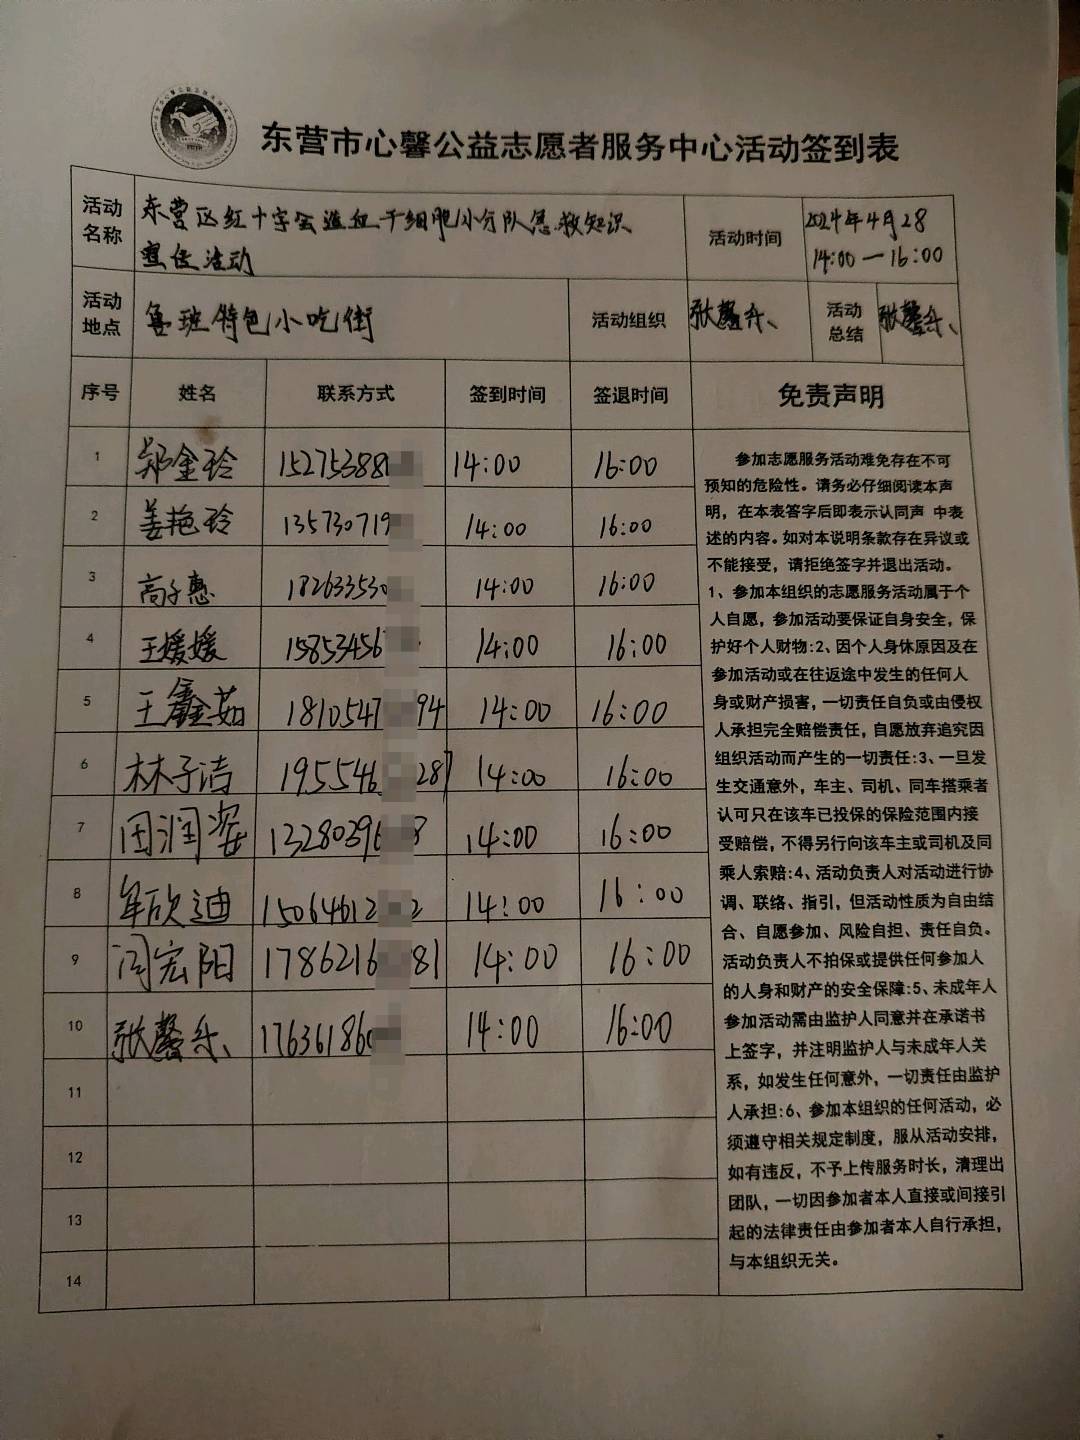 东营市心馨公益志愿者服务中心活动签到表
活动名称 东营区红十字会造血干细胞小分队急救知识 活动时间 2024年4月28
宣传活动 14:00—16:00
活动地点 鲁班特色小吃街 活动组织 张馨乐、 活动总结 张馨乐、
序号 姓名 联系方式 签到时间 签退时间 免责声明
1 郑金玲 15275388 14:00 16:00
2 姜艳玲 135730719 14:00 16:00
3 高子惠 182633530 14:00 16:00
4 王媛媛 15853456 14:00 16:00
5 王鑫茹 1810547 94 14:00 16:00
6 林子洁 195546 287 14:00 16:00
7 田润姿 13280396 8 14:00 16:00
8 牟欣迪 15064612 2 14:00 16:00
9 闫宏阳 1786216 81 14:00 16:00
10 张馨乐、 176361860 14:00 16:00
11
12
13
14
参加志愿服务活动难免存在不可
预知的危险性。请务必仔细阅读本声
明，在本表答字后即表示认同声 中表
述的内容。如对本说明条款存在异议或
不能接受，请拒绝签字并退出活动。
1、参加本组织的志愿服务活动属于个
人自愿，参加活动要保证自身安全，保
护好个人财物:2、因个人身休原因及在
参加活动或在往返途中发生的任何人
身或财产损害，一切责任自负或由侵权
人承担完全赔偿责任，自愿放弃追究因
组织活动而产生的一切责任:3、一旦发
生交通意外，车主、司机、同车搭乘者
认可只在该车已投保的保险范围内接
受赔偿，不得另行向该车主或司机及同
乘人索赔:4、活动负责人对活动进行协
调、联络、指引，但活动性质为自由结
合、自愿参加、风险自担、责任自负。
活动负责人不拍保或提供任何参加人
的人身和财产的安全保障:5、未成年人
参加活动需由监护人同意并在承诺书
上签字，并注明监护人与未成年人关
系，如发生任何意外，一切责任由监护
人承担:6、参加本组织的任何活动，必
须遵守相关规定制度，服从活动安排，
如有违反，不予上传服务时长，清理出
团队，一切因参加者本人直接或间接引
起的法律责任由参加者本人自行承担，
与本组织无关。